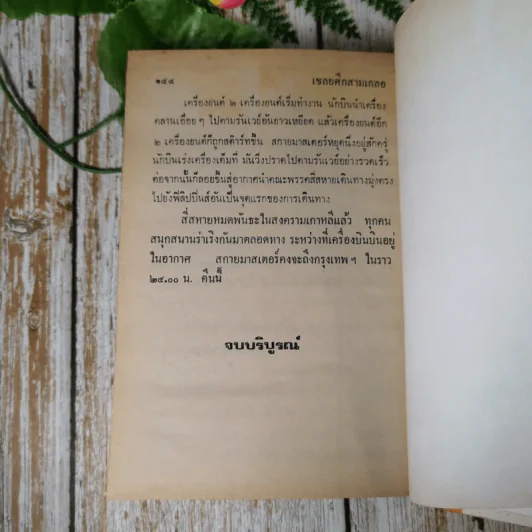 ๒๔๔ เชลยศึกสามเกลอ
เครื่องยนต์ ๒ เครื่องยนต์เริ่มทำงาน นักบินนำเครื่อง
คลานเอื่อย ๆ ไปตามรันเวย์อันยาวเหยียด แล้วเครื่องยนต์อีก
๒ เครื่องยนต์ก็ถูกสต๊าร์ทขึ้น สกายมาสเตอร์หยุดนิ่งอยู่สักครู่
นักบินเร่งเครื่องเต็มที่ มันวิ่งปราดไปตามรันเวย์อย่างรวดเร็ว
ต่อจากนั้นก็ลอยขึ้นสู่อากาศนำคณะพรรคสี่สหายเดินทางมุ่งตรง
ไปยังฟิลิปปินส์อันเป็นจุดแรกของการเดินทาง
สี่สหายหมดพันธะในสงครามเกาหลีแล้ว ทุกคน
สนุกสนานร่าเริงกันมาตลอดทาง ระหว่างที่เครื่องบินบินอยู่
ในอากาศ สกายมาสเตอร์คงจะถึงกรุงเทพ ฯ ในราว
๒๔.๐๐ น. คืนนี้
จบบริบูรณ์